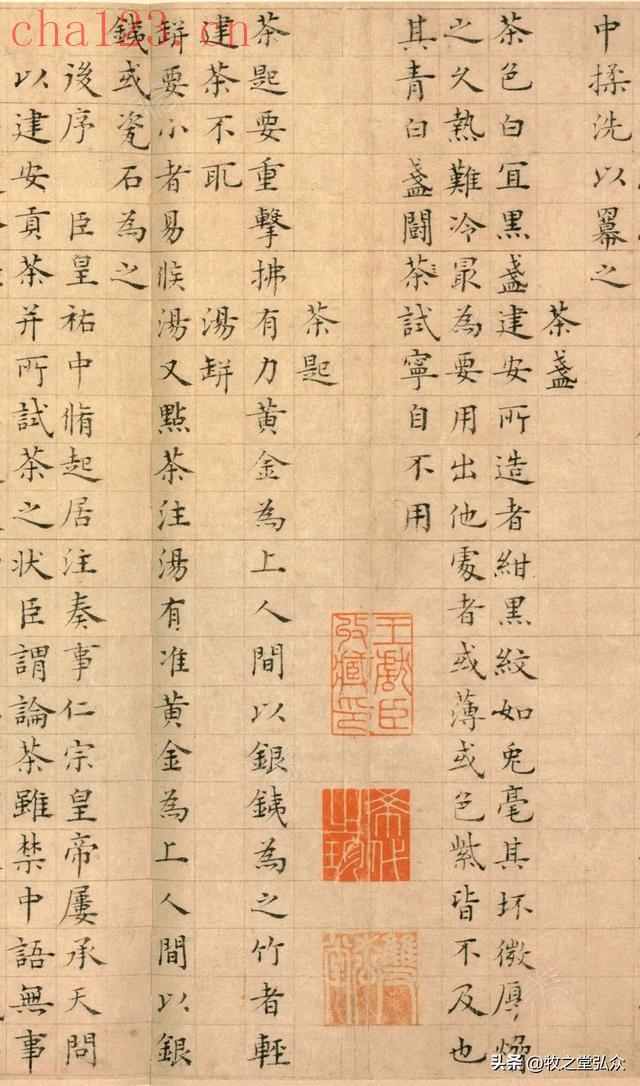 中揉洗以冪之
茶盞
茶色白宜黑盞建安所造者紺黑紋如兎毫其坯微厚熁
之久熱難冷最為要用出他處者或薄或色紫皆不及也
其青白盞鬪茶試寧自不用
茶匙
茶匙要重擊拂有力黃金為上人間以銀銕為之竹者輕
建茶不取 湯缾
缾要小者易候湯又點茶注湯有准黃金為上人間以銀
銕或瓷石為之
後序 臣皇祐中脩起居注奏事仁宗皇帝屢承天問
以建安貢茶并所試茶之状臣謂論茶雖禁中語無事
王獻臣
收藏印
希代
之珍
cha123.cn
头条 @牧之堂弘众